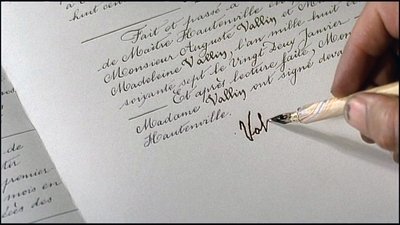 huit cent
Fait et passé à
de Maître Hautenville
Monsieur Auguste Vallin et M
Madeleine Vallin, l'an mille huit c
soixante sept le Vingt Deux Janvier
Et après lecture faite, Mon
Madame Vallin ont signé deva
Hautenville.
Val
premier
mois en
ées des